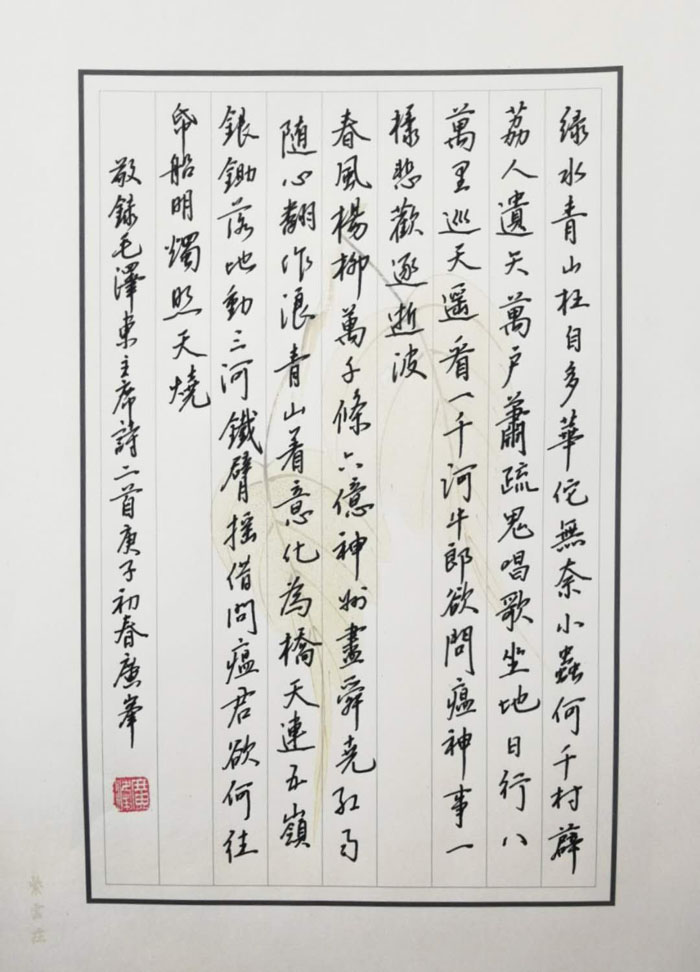 綠水青山枉自多華佗無奈小蟲何千村薜
荔人遺矢萬戶蕭疏鬼唱歌坐地日行八
萬里巡天遥看一千河牛郎欲問瘟神事一
樣悲歡逐逝波
春風楊柳萬千條六億神州盡舜堯紅雨
随心翻作浪青山着意化為橋天連五嶺
銀鋤落地動三河鐵臂摇借問瘟君欲何往
帋船明燭照天燒
敬錄毛澤東主席詩二首庚子初春廣峯